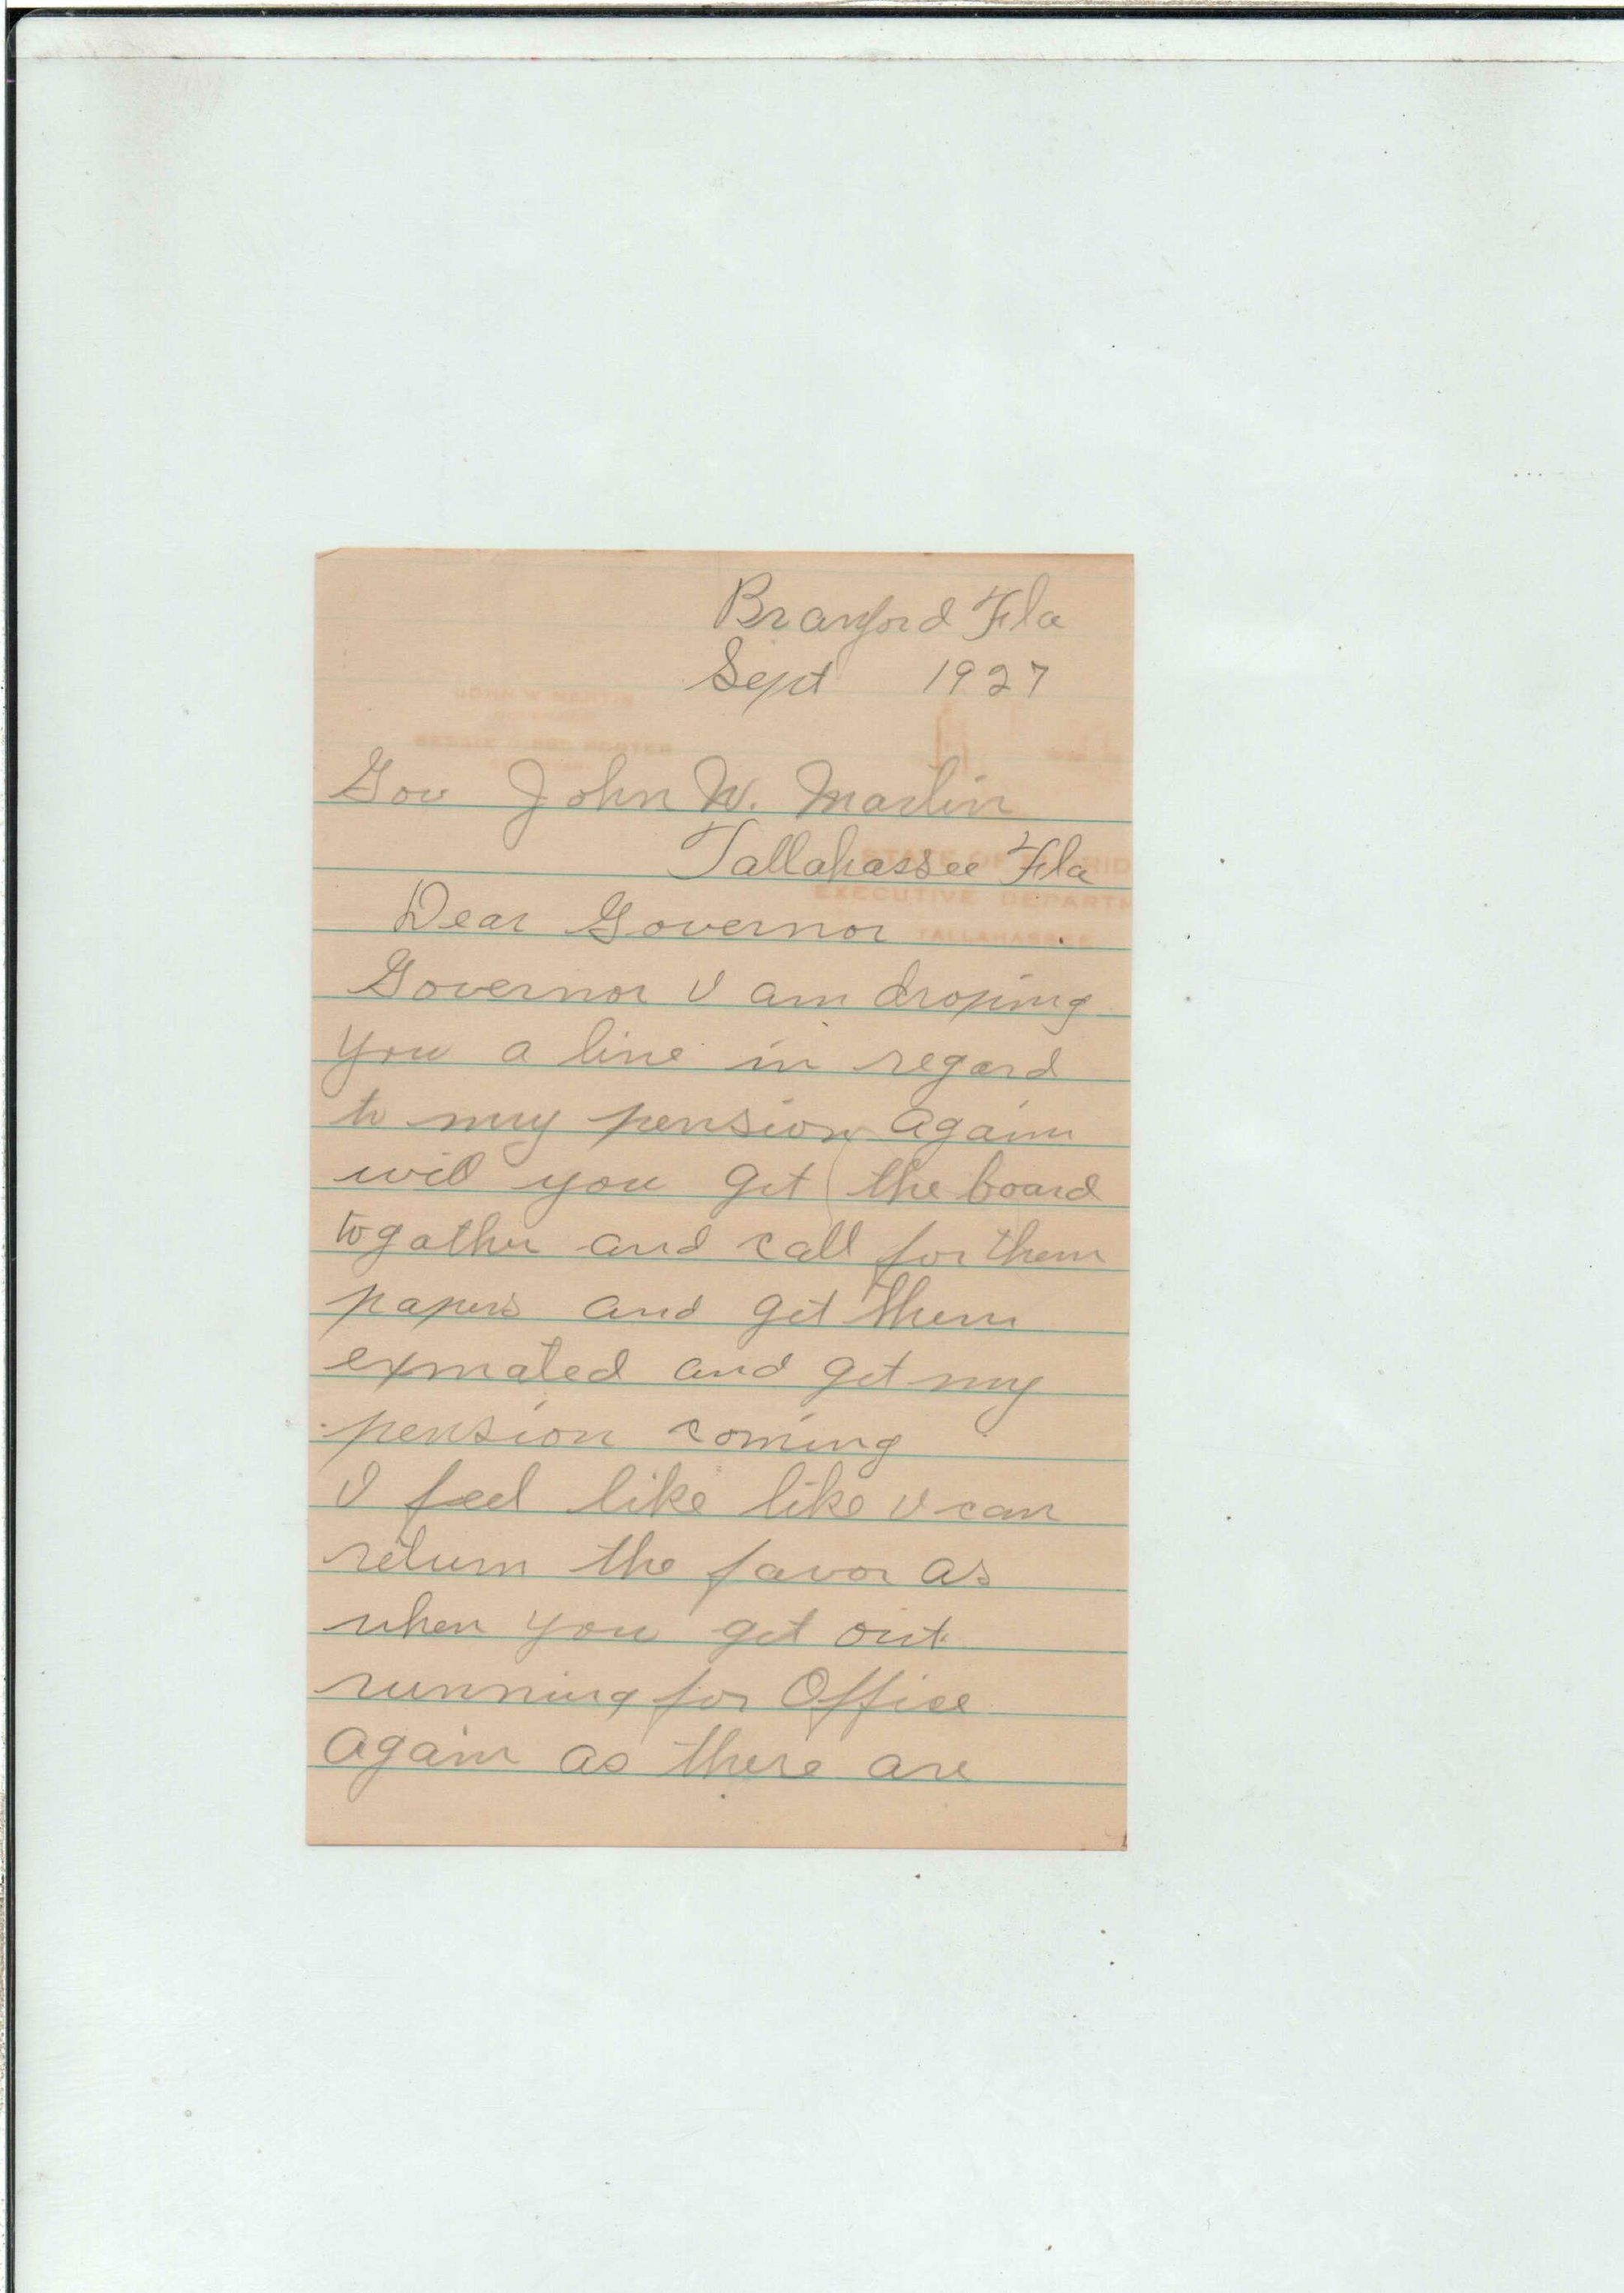 Branford Fla
Sept 1927
JOHN W MARTIN
Gov John W. Martin
Tallahassee Fla
EXECUTIVE DEPARTM
TALLAHASSEE
Dear Governor
Governor I am droping
you a line in regard
to my pension again
will you get the board
togather and call for them
papers and get them
exmated and get my
pension coming
I feel like like I can
return the favor as
when you get out
running for Office
again as there are